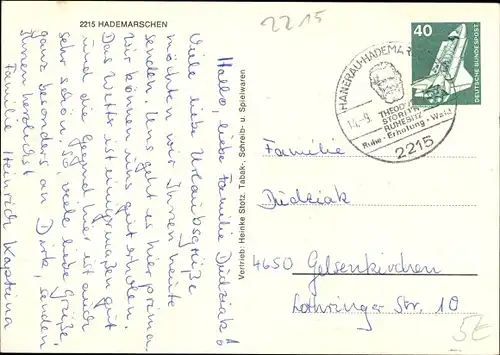 2215 HADEMARSCHEN
2215
Hallo, liebe Familie Dudziak!
Viele liebe Urlaubsgrüße
möchten wir Ihnen heute
senden. Uns geht es hier prima.
Wir können uns gut erholen.
Das Wetter ist einigermaßen gut
und die Gegend hier ist auch
sehr schön. So, viele liebe Grüße,
ganz besonders an Dirk, senden
Ihnen herzlichst
Familie Heinrich Kaptina
Vertrieb: Heinke Stotz, Tabak-, Schreib- u. Spielwaren
HANERAU-HADEMAR
THEODOR
STORM
RUHESITZ
Ruhe · Erholung · Wald
2215
40
DEUTSCHE BUNDESPOST
Familie
Dudziak
4650 Gelsenkirchen
Lothringer Str. 10
5€